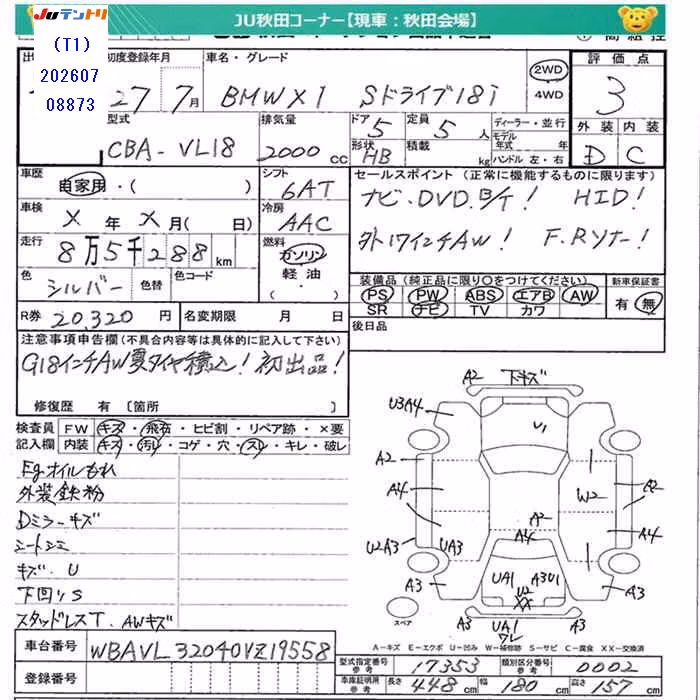 JUテントリ
JU秋田コーナー【現車：秋田会場】
(T1)
202607
08873
初度登録年月
27 7月
車名・グレード
BMW X1 Sドライブ18i
2WD
4WD
評価点
3
外装 内装
D C
型式
CBA-VL18
排気量
2000cc
ドア 5
定員 5人
形状 HB
積載 kg
ディーラー・並行
モデル年式 年式
ハンドル 左・右
車歴
自家用・( )
シフト
6AT
セールスポイント（正常に機能するものに限ります）
ナビ.DVD.B/T! HID!
外17インチAW! F.Rソナー!
車検
X年X月( 日)
冷房
AAC
走行
8万5千288km
燃料
ガソリン
軽油
・( )
色
シルバー
色替
色コード
装備品（純正品に限り○をつけてください）
PS PW ABS エアB AW
SR ナビ TV カワ
新車保証書
有 無
R券 20,320円
名変期限 月 日
後日品
注意事項申告欄（不具合内容等は具体的に記入して下さい）
G18インチAW夏タイヤ積込! 初出品!
修復歴 有〔箇所 〕
検査員記入欄
FW キズ・飛石・ヒビ割・リペア跡・×要
内装 キズ・汚れ・コゲ・穴・スレ・キレ・破レ
Egオイルもれ
外装鉄粉
Dミラーキズ
シートシミ
キズ.U
下回りS
スタッドレスT.AWキズ
A2 下キズ A2
U3A4
U1
A2
A4
W2
A2
A2
A4
A4
U2A3
UA3
A3
UA1
A3U1
U2
XX
A3
A3
UA1
ワレ
A3
スペア
A－キズ E－エクボ U－凹み W－補修跡 S－サビ C－腐食 XX－交換済
車台番号
WBAVL32040VZ19558
登録番号
型式指定番号 参考
17353
類別区分番号 参考
0002
車庫証明用 参考
長さ 448cm
幅 180cm
高さ 157cm